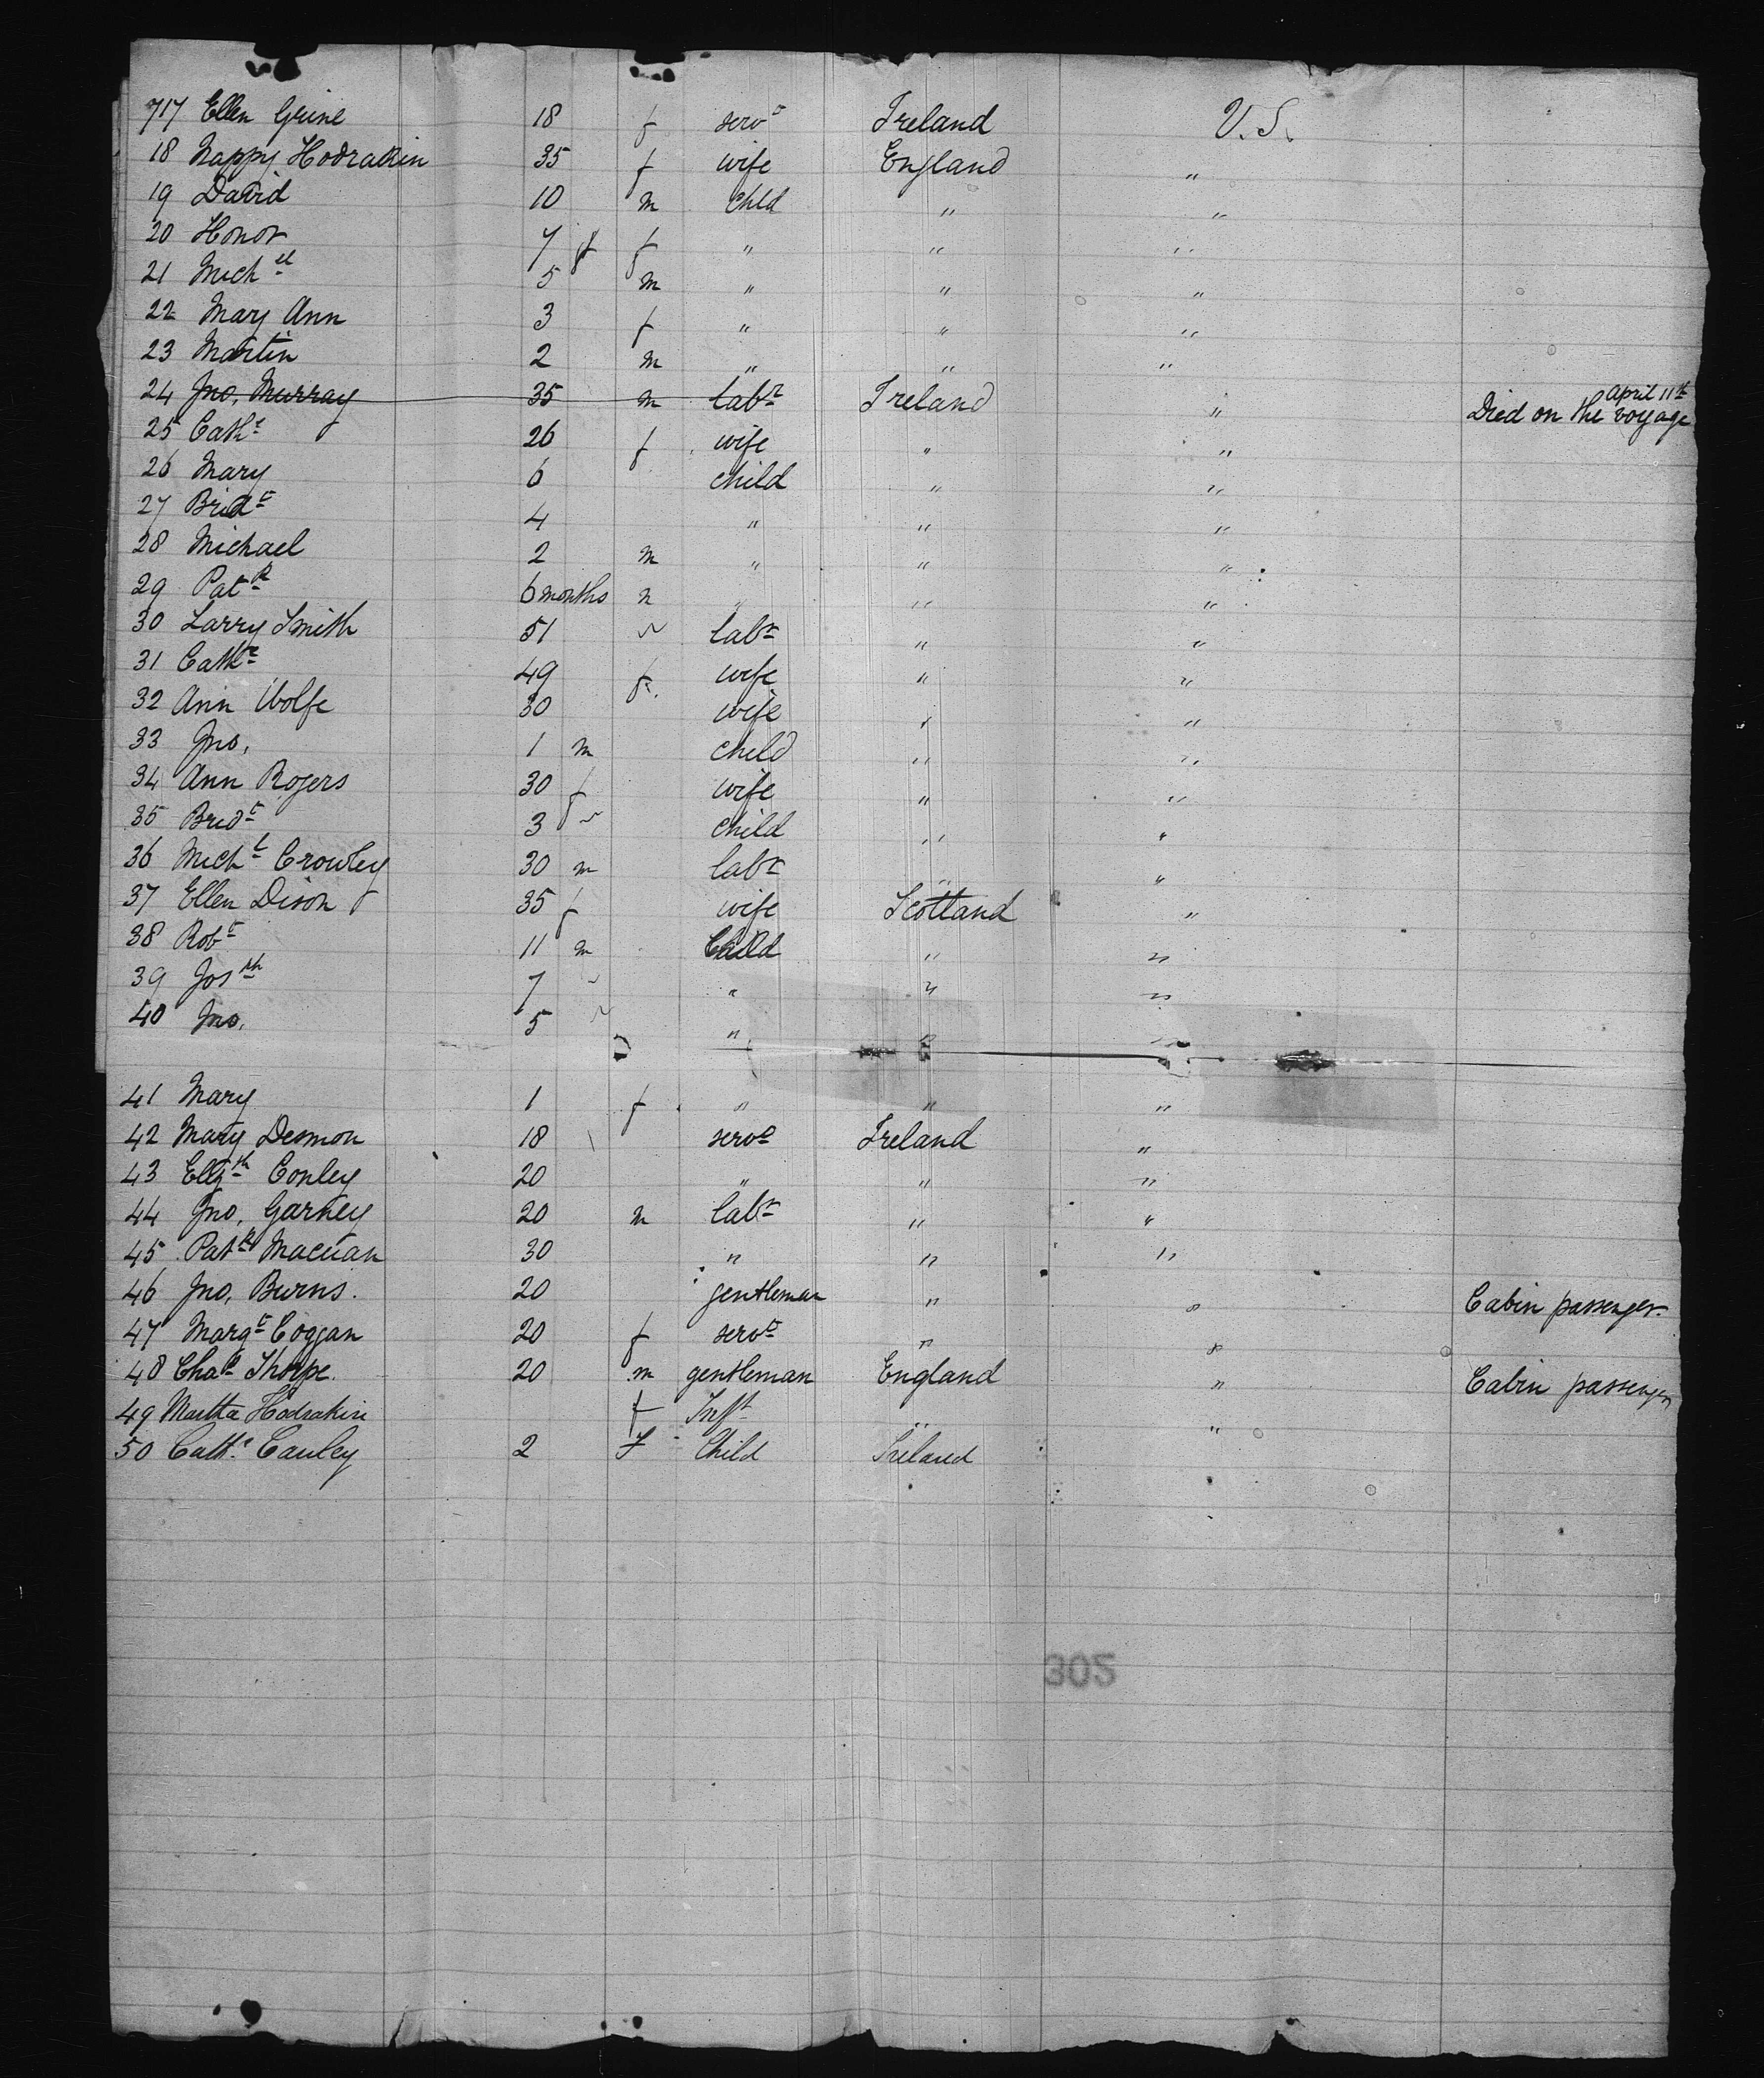 717 Ellen Grine 18 f servt Ireland U.S.
18 Nappy Hodrakin 35 f wife England "
19 David 10 m chld " "
20 Honor 7 f f " " "
21 Michel 5 m " " "
22 Mary Ann 3 f " " "
23 Martin 2 m " " "
24 Jno, Murray 35 m labr Ireland " Died on the voyage April 11th
25 Cathe 26 f wife " "
26 Mary 6 child " "
27 Bridt 4 " " "
28 Michael 2 m " " "
29 Patk 6 months m " " "
30 Larry Smith 51 " labr " "
31 Cathe 49 f wife " "
32 Ann Wolfe 30 wife " "
33 Jno, 1 m child " "
34 Ann Rogers 30 f wife " "
35 Bridt 3 " child " "
36 Michl Crowley 30 m labr " "
37 Ellen Dison 35 f wife Scotland "
38 Robt 11 m Child " "
39 Josph 7 " " " "
40 Jno, 5 " " " "
41 Mary 1 f " " "
42 Mary Desmon 18 servt Ireland "
43 Elizth Conley 20 " " "
44 Jno, Garney 20 m labr " "
45 Patk 30 " " "
46 Jno, Burns. 20 gentleman " " Cabin passenger
47 Margt Coggan 20 f servt " "
48 Chas Thorpe. 20 m gentleman England " Cabin passenger
49 Martha Hodrakin f Inft " "
50 Cathe Cauley 2 F Child Ireland
302